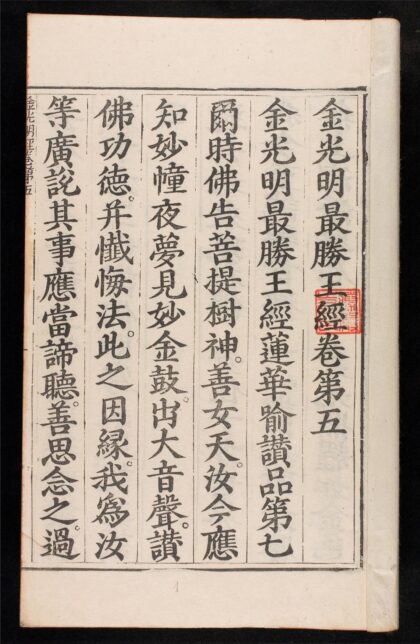 金光明最勝王經卷第五
金光明最勝王經蓮華喻讃品第七
爾時佛告菩提樹神。善女天。汝今應
知妙幢夜夢見妙金鼓。出大音聲。讃
佛功德。并懺悔法。此之因緣。我爲汝
等廣說其事應當諦聽。善思念之。過